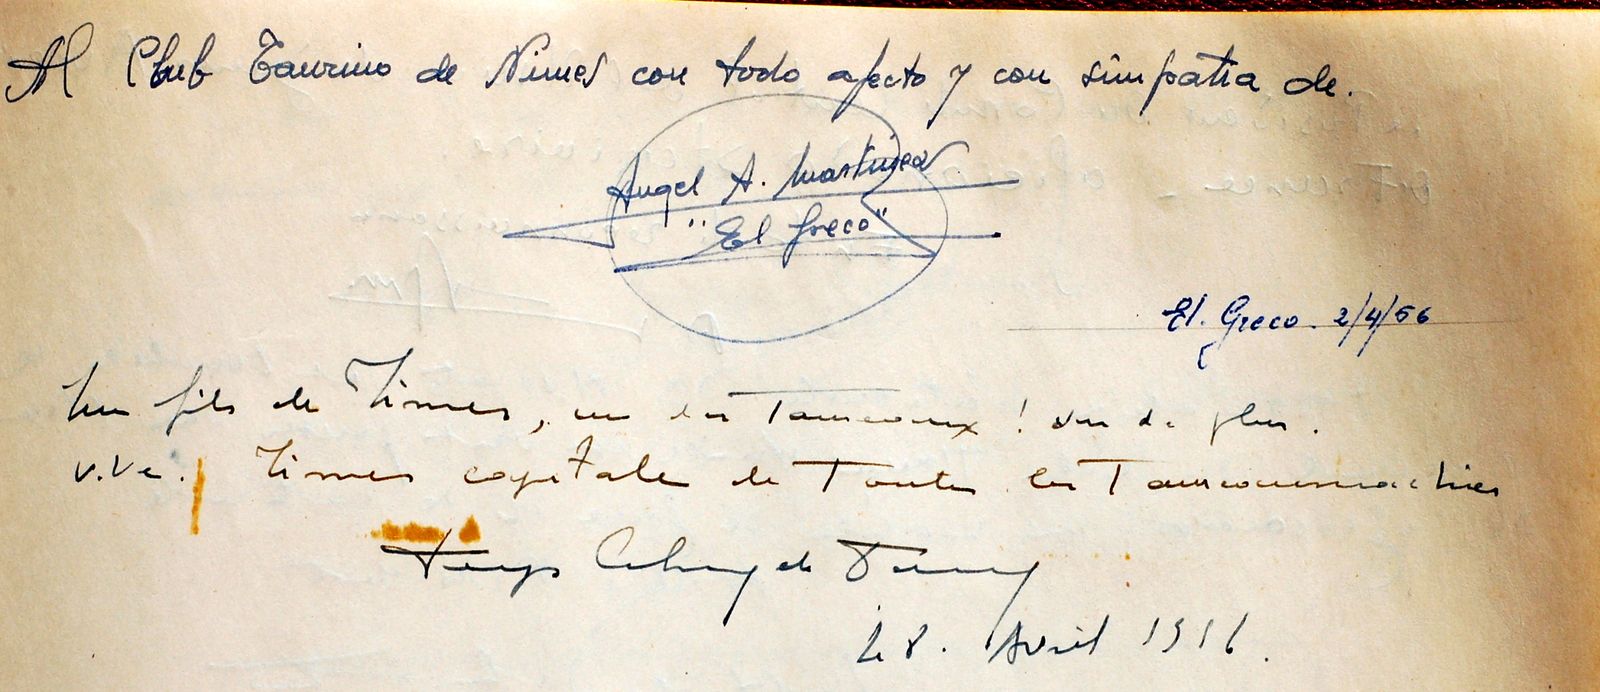 Al Club Taurino de Nimes con todo afecto y con simpatia de.
Angel A. Martinez
"El Greco"
El. Greco. 2/4/56
Un fils de Nimes, un des Taureaux ! un de plus.
Vive. Nimes capitale de Toutes les Tauromachies
de
28. Avril 1956.